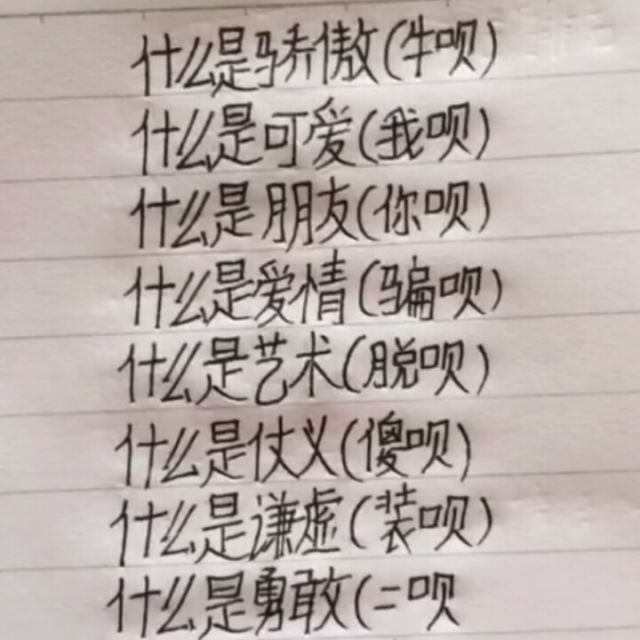 什么是骄傲(牛呗)
什么是可爱(我呗)
什么是朋友(你呗)
什么是爱情(骗呗)
什么是艺术(脱呗)
什么是仗义(傻呗)
什么是谦虚(装呗)
什么是勇敢(二呗